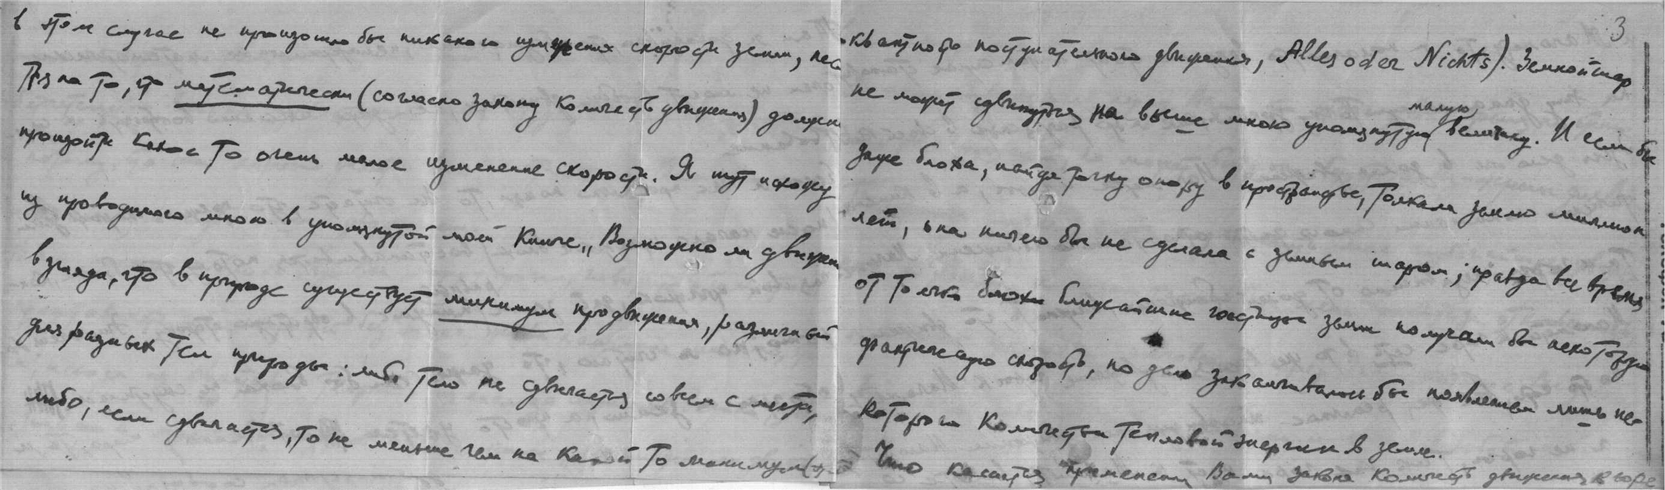 в этом случае не произошло бы никакого изменения скорости земли, нес
тря на то, что математически (согласно закону количеств движения) должен
произойти какое то очень малое изменение скорости. Я тут исхожу
из проводимого мною в упомянутой моей книге „Возможно ли движен
взгляда, что в природе существует минимум продвижения, различный
для разных тел природы: либо тело не сдвигается совсем с места,
либо, если сдвигается, то не меньше чем на какой то минимум
3
квантность поступательного движения, Alles oder Nichts). Земной шар
не может сдвинуться на выше мною упомянутую малую величину. И если бы
даже блоха, найдя точку опоры в пространстве, толкала землю миллион
лет, она ничего бы не сделала с земным шаром; правда все время
от толчка блохи ближайшие частицы земли получали бы некоторую
фактическую скорость, но дело заканчивалось бы появлением лишь не-
которого количества тепловой энергии в земле.
Что касается применения Вами закона количеств движения к